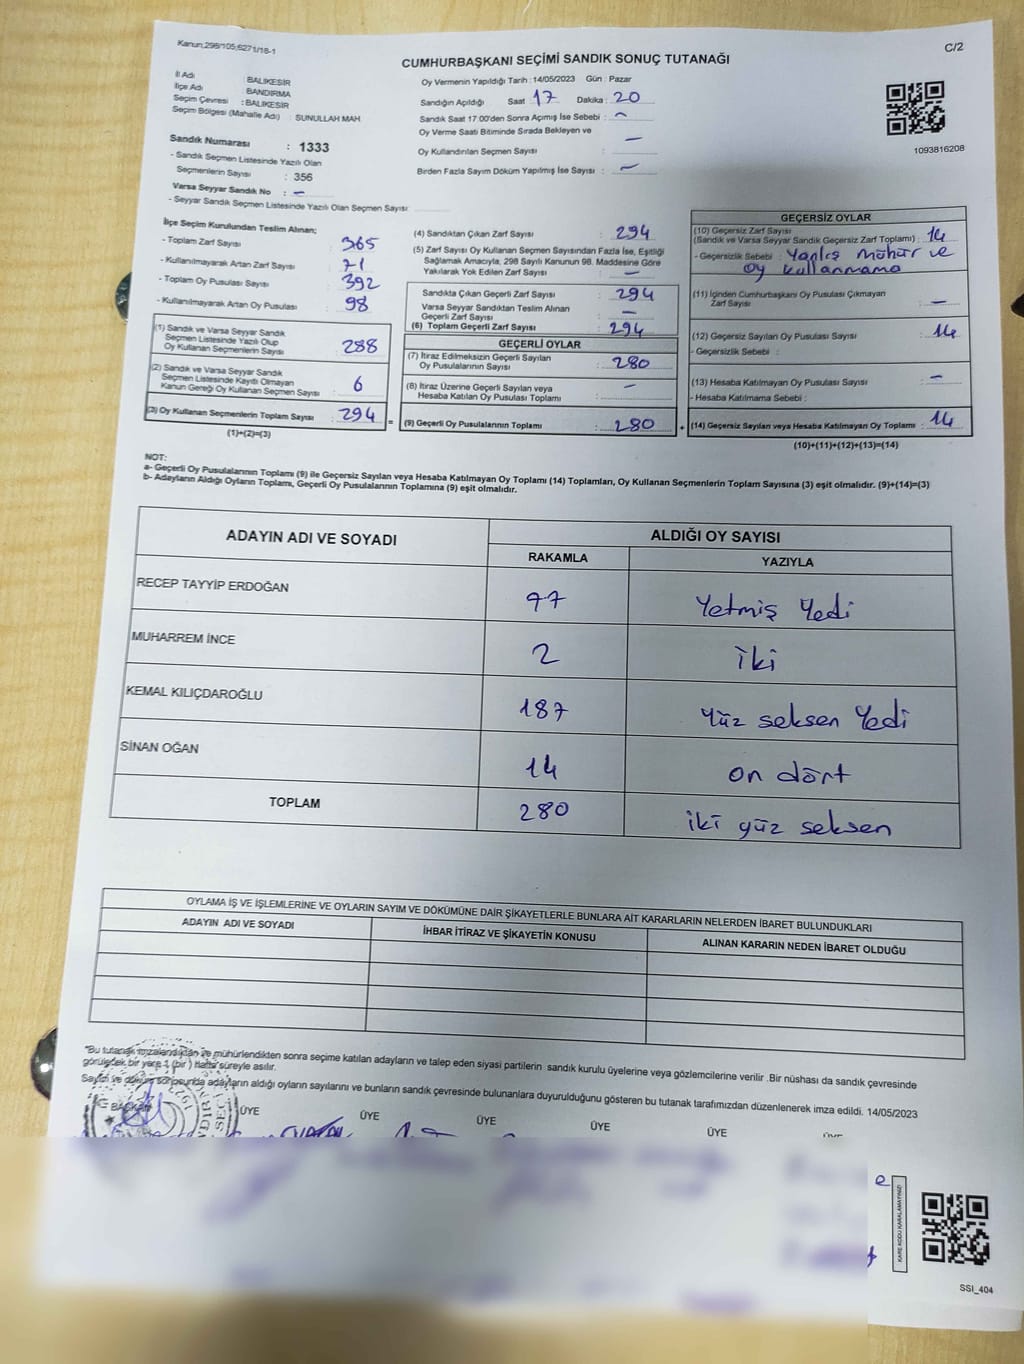 Kanun,298/105;6271/18-1
C/2
CUMHURBAŞKANI SEÇİMİ SANDIK SONUÇ TUTANAĞI
İl Adı : BALIKESİR
İlçe Adı : BANDIRMA
Seçim Çevresi : BALIKESİR
Seçim Bölgesi (Mahalle Adı) : SUNULLAH MAH.
Sandık Numarası : 1333
- Sandık Seçmen Listesinde Yazılı Olan
Seçmenlerin Sayısı : 356
Varsa Seyyar Sandık No : –
- Seyyar Sandık Seçmen Listesinde Yazılı Olan Seçmen Sayısı:
Oy Vermenin Yapıldığı Tarih : 14/05/2023 Gün : Pazar
Sandığın Açıldığı Saat 17 Dakika : 20
Sandık Saat 17.00'den Sonra Açımış İse Sebebi : –
Oy Verme Saati Bitiminde Sırada Bekleyen ve
Oy Kullandırılan Seçmen Sayısı : –
Birden Fazla Sayım Döküm Yapılmış İse Sayısı : –
1093816208
İlçe Seçim Kurulundan Teslim Alınan;
- Toplam Zarf Sayısı : 365
- Kullanılmayarak Artan Zarf Sayısı : 71
- Toplam Oy Pusulası Sayısı : 392
- Kullanılmayarak Artan Oy Pusulası : 98
(1) Sandık ve Varsa Seyyar Sandık
Seçmen Listesinde Yazılı Olup
Oy Kullanan Seçmenlerin Sayısı : 288
(2) Sandık ve Varsa Seyyar Sandık
Seçmen Listesinde Kayıtlı Olmayan
Kanun Gereği Oy Kullanan Seçmen Sayısı : 6
(3) Oy Kullanan Seçmenlerin Toplam Sayısı : 294
(1)+(2)=(3)
=
(4) Sandıktan Çıkan Zarf Sayısı : 294
(5) Zarf Sayısı Oy Kullanan Seçmen Sayısından Fazla İse, Eşitliği
Sağlamak Amacıyla, 298 Sayılı Kanunun 98. Maddesine Göre
Yakılarak Yok Edilen Zarf Sayısı : –
Sandıkta Çıkan Geçerli Zarf Sayısı : 294
Varsa Seyyar Sandıktan Teslim Alınan
Geçerli Zarf Sayısı : –
(6) Toplam Geçerli Zarf Sayısı : 294
GEÇERLİ OYLAR
(7) İtiraz Edilmeksizin Geçerli Sayılan
Oy Pusulalarının Sayısı : 280
(8) İtiraz Üzerine Geçerli Sayılan veya
Hesaba Katılan Oy Pusulası Toplamı : –
(9) Geçerli Oy Pusulalarının Toplamı : 280
+
GEÇERSİZ OYLAR
(10) Geçersiz Zarf Sayısı
(Sandık ve Varsa Seyyar Sandık Geçersiz Zarf Toplamı) : 14
- Geçersizlik Sebebi : Yanlış mühür ve
oy kullanmama
(11) İçinden Cumhurbaşkanı Oy Pusulası Çıkmayan
Zarf Sayısı : –
(12) Geçersiz Sayılan Oy Pusulası Sayısı : 14
- Geçersizlik Sebebi :
(13) Hesaba Katılmayan Oy Pusulası Sayısı : –
- Hesaba Katılmama Sebebi :
(14) Geçersiz Sayılan veya Hesaba Katılmayan Oy Toplamı : 14
(10)+(11)+(12)+(13)=(14)
NOT:
a- Geçerli Oy Pusulalarının Toplamı (9) ile Geçersiz Sayılan veya Hesaba Katılmayan Oy Toplamı (14) Toplamları, Oy Kullanan Seçmenlerin Toplam Sayısına (3) eşit olmalıdır. (9)+(14)=(3)
b- Adayların Aldığı Oyların Toplamı, Geçerli Oy Pusulalarının Toplamına (9) eşit olmalıdır.
ADAYIN ADI VE SOYADI
ALDIĞI OY SAYISI
RAKAMLA YAZIYLA
RECEP TAYYİP ERDOĞAN 77 Yetmiş Yedi
MUHARREM İNCE 2 iki
KEMAL KILIÇDAROĞLU 187 Yüz seksen Yedi
SİNAN OĞAN 14 on dört
TOPLAM 280 iki yüz seksen
OYLAMA İŞ VE İŞLEMLERİNE VE OYLARIN SAYIM VE DÖKÜMÜNE DAİR ŞİKAYETLERLE BUNLARA AİT KARARLARIN NELERDEN İBARET BULUNDUKLARI
ADAYIN ADI VE SOYADI İHBAR İTİRAZ VE ŞİKAYETİN KONUSU ALINAN KARARIN NEDEN İBARET OLDUĞU
*Bu tutanak imzalandıktan ve mühürlendikten sonra seçime katılan adayların ve talep eden siyasi partilerin sandık kurulu üyelerine veya gözlemcilerine verilir .Bir nüshası da sandık çevresinde
görülecek bir yere 1 (bir ) hafta süreyle asılır.
Sayım ve döküm sonucunda adayların aldığı oyların sayılarını ve bunların sandık çevresinde bulunanlara duyurulduğunu gösteren bu tutanak tarafımızdan düzenlenerek imza edildi. 14/05/2023
BAŞKAN ÜYE ÜYE ÜYE ÜYE ÜYE
KARE KODU KARALAMAYINIZ!
SSI_404